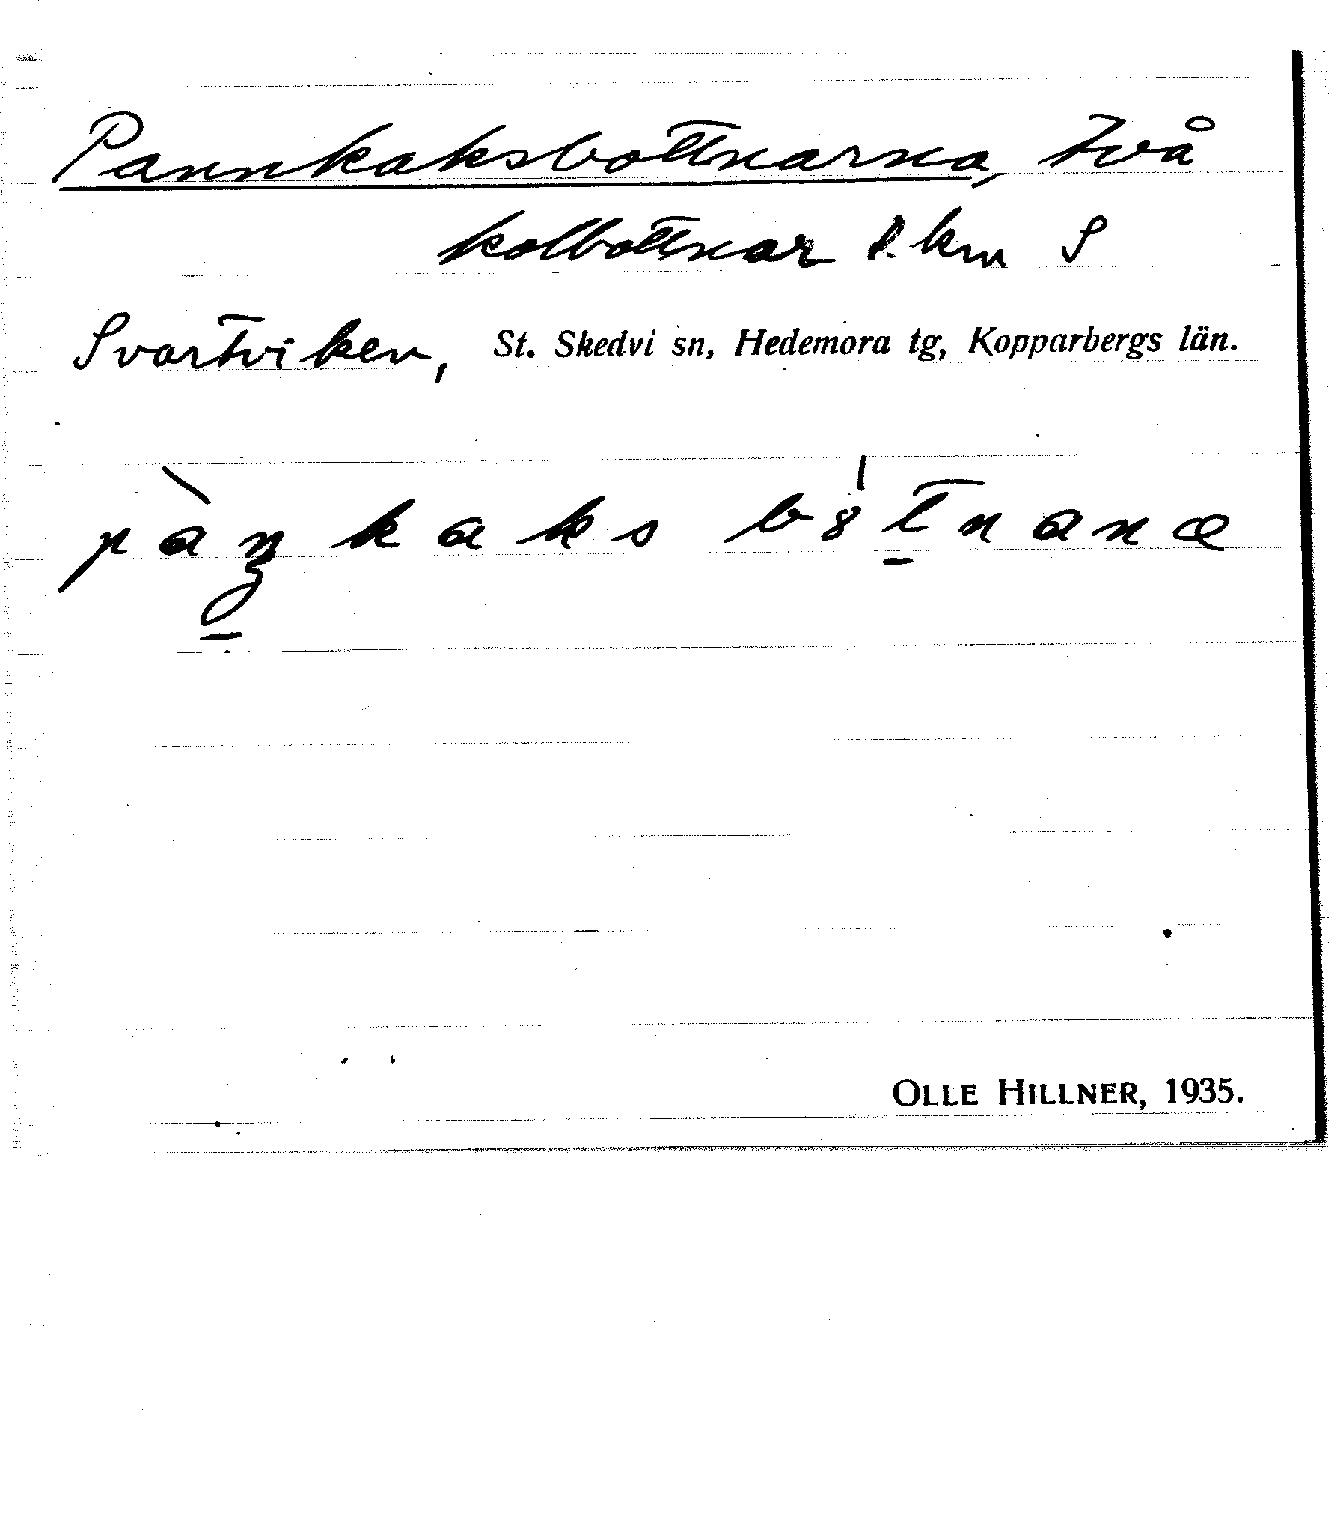 Pannkaksbottnarna, två
kolbottnar 1. km S
Svartviken, St. Skedvi sn, Hedemora tg, Kopparbergs län.
OLLE HILLNER, 1935.